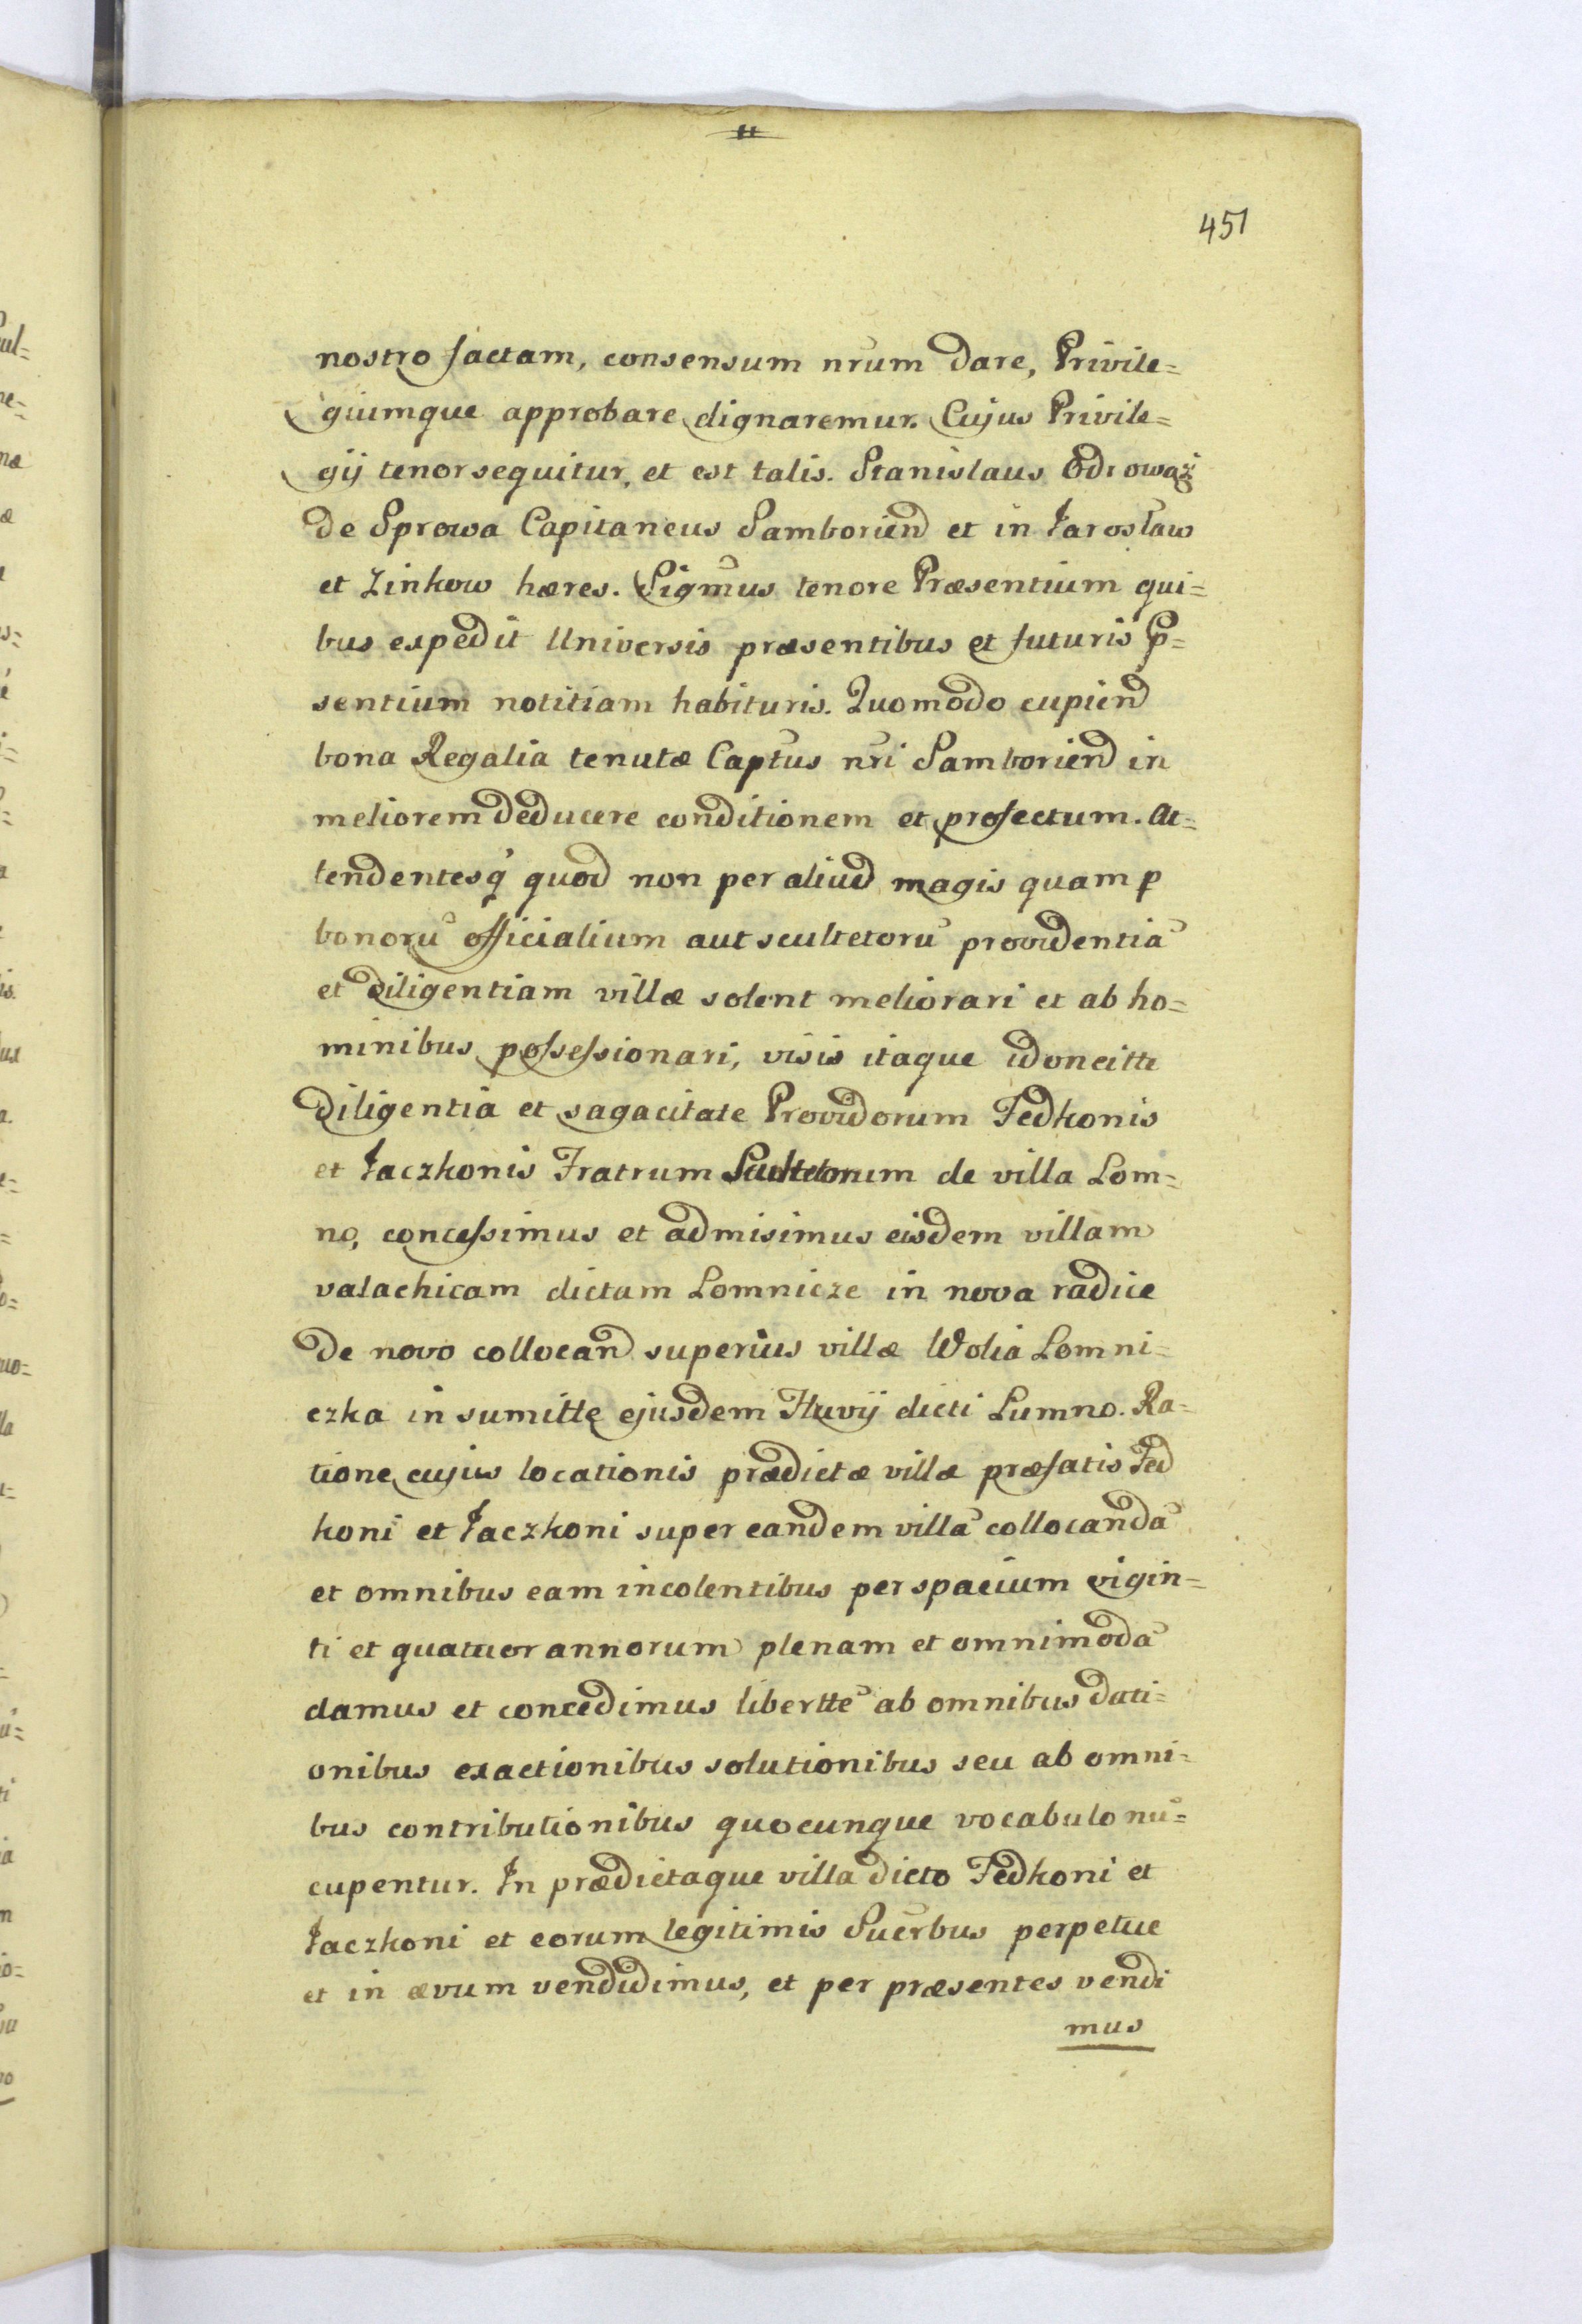 451
nostro factam, consensum nrum dare, Privile=
giumque approbare dignaremur. Cujus Privile=
gij tenor sequitur, et est talis. Stanislaus Odrowąż
de Sprowa Capitaneus Samborien̄d et in Jarosław
et Zinkow hæres. Sigm̃us tenore Præsentium qui=
bus expedit Universis præsentibus et futuris p̄=
sentium notitiam habituris. Quomodo cupien̄d
bona Regalia tenutæ Cap̃tus nr̃i Samborien̄d in
meliorem deducere conditionem et profectum. At=
tendentesq̃ quod non per aliud magis quam p̱
bonorũ officialium aut scultetorũ providentiã
et diligentiam villæ solent meliorari et ab ho=
minibus possessionari, visis itaque idoneitte
diligentia et sagacitate Providorum Fedkonis
et Jaczkonis Fratrum Scultetorum de villa Lom=
no, concessimus et admisimus eisdem villam
valachicam dictam Lomnicze in nova radice
de novo collocan̄d superius villæ Wolia Lomni=
czka in sumitte ejusdem Fluvij dicti Lumno. Ra=
tione cujus locationis prædictæ villæ præfatis Fed
koni et Jaczkoni super eandem villã collocandã
et omnibus eam incolentibus per spacium vigin=
ti et quatuor annorum plenam et omnimodã
damus et concedimus libertte᷃ ab omnibus dati=
onibus exactionibus solutionibus seu ab omni=
bus contributionibus quocunque vocabulo nũ=
cupentur. In prædictaque villa dicto Fedkoni et
Jaczkoni et eorum legitimis Suc̃rbus perpetue
et in ævum vendidimus, et per præsentes vendi
mus